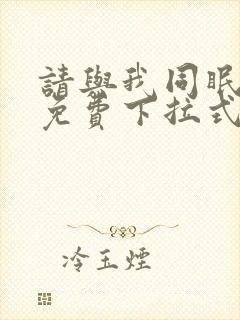 請與我同眠
免費下拉式
冷玉煙